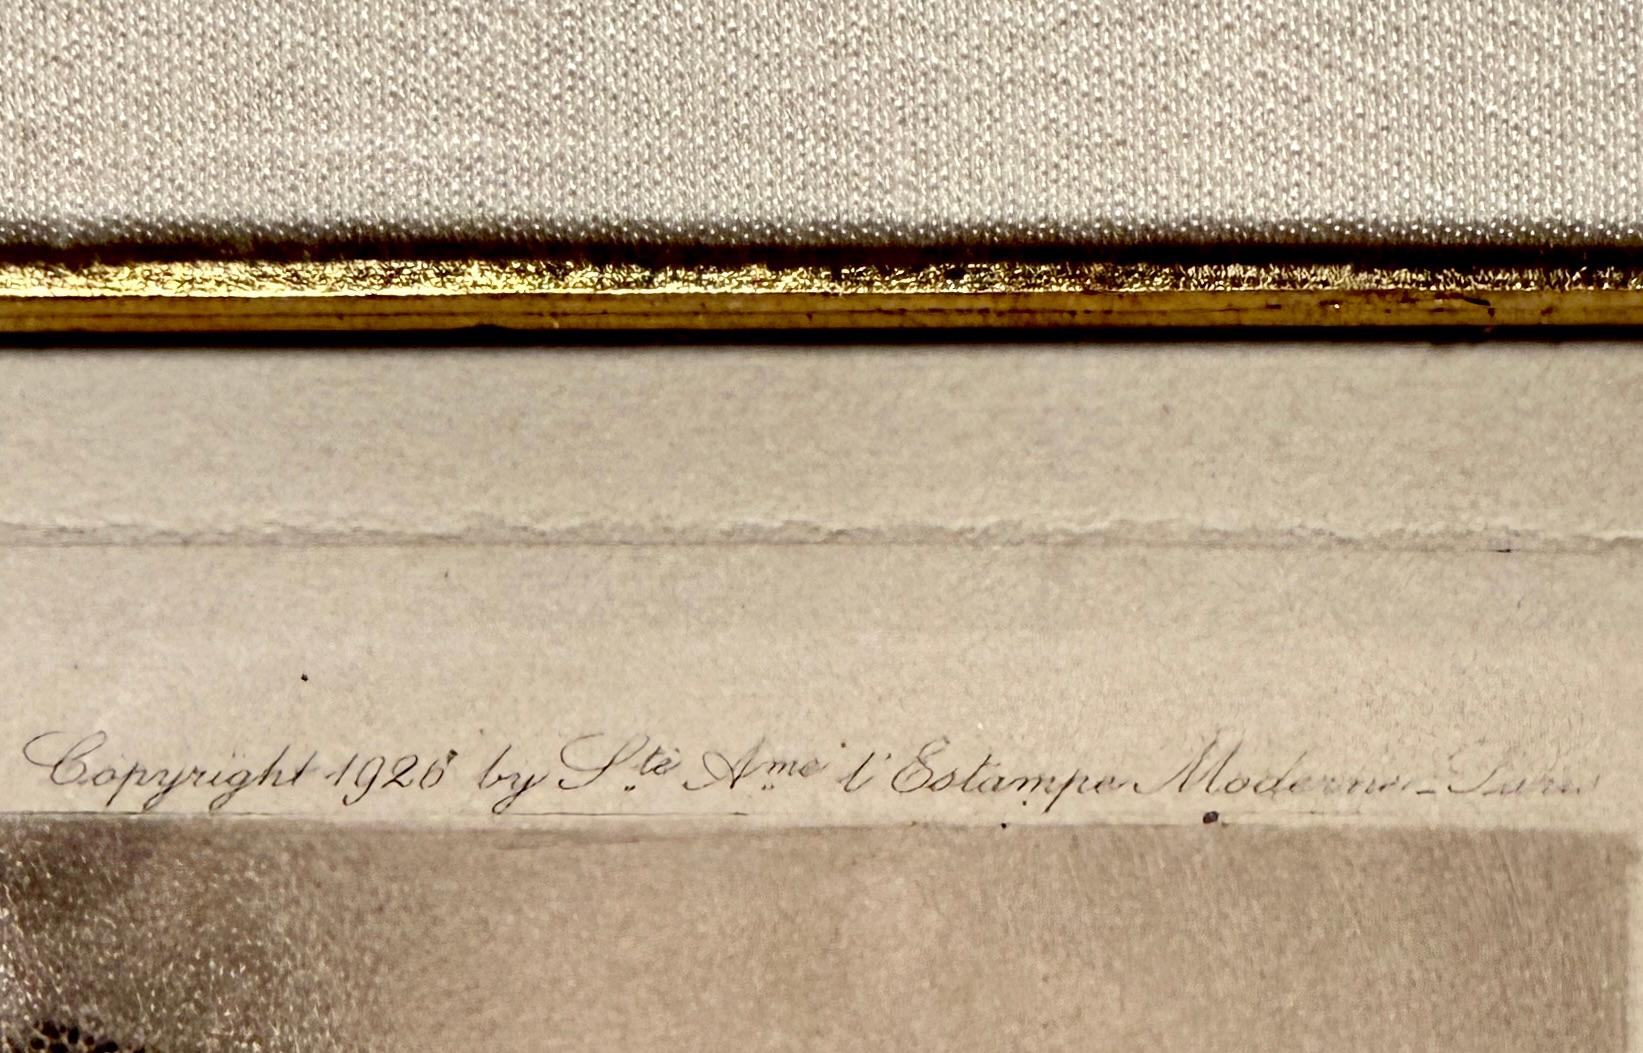 Copyright 1926 by Sté. Ame. l'Estampe Moderne - Paris